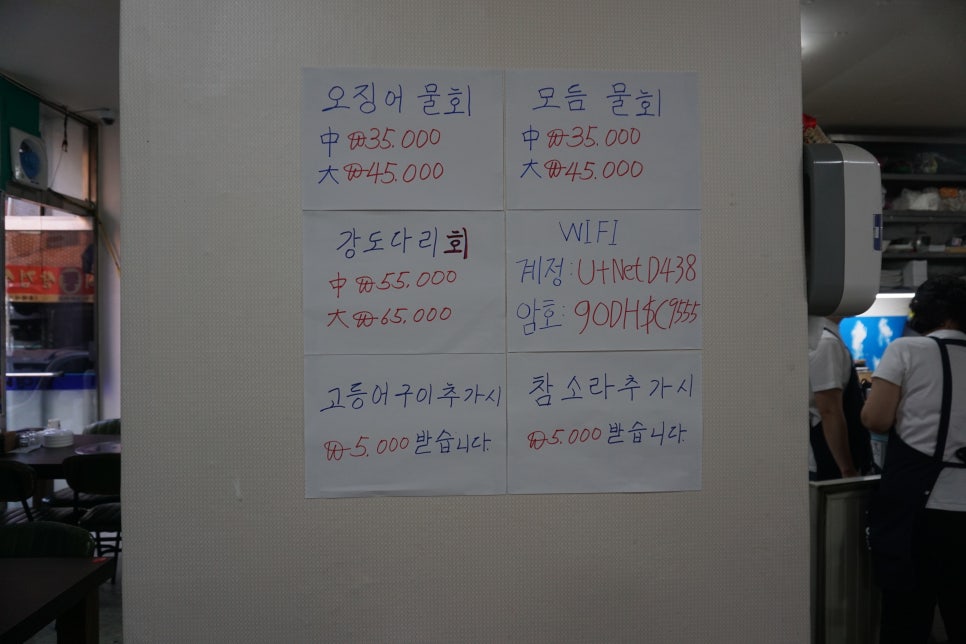 오징어 물회
中 ₩35.000
大 ₩45.000
모듬 물회
中 ₩35.000
大 ₩45.000
강도다리회
中 ₩55.000
大 ₩65.000
WIFI
계정: U+NetD438
암호: 90DH$C9555
고등어구이추가시
₩5.000 받습니다.
참소라추가시
₩5.000 받습니다.